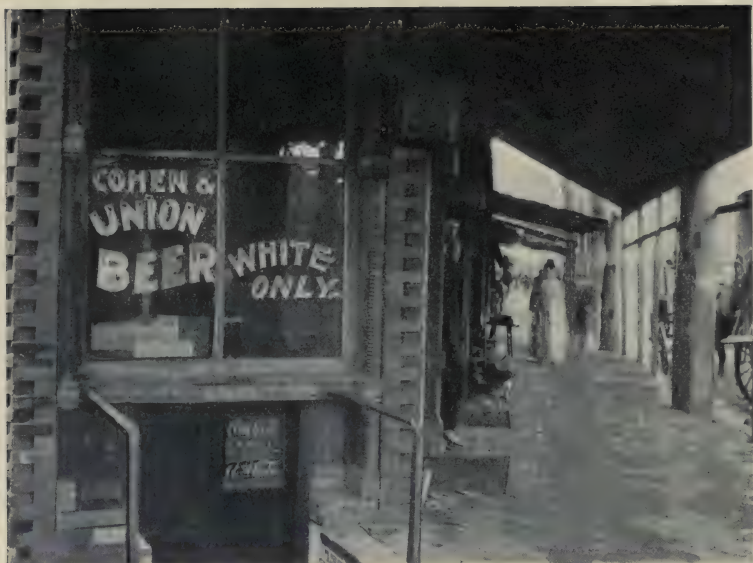 COHEN &
UNION
BEER WHITE
ONLY.